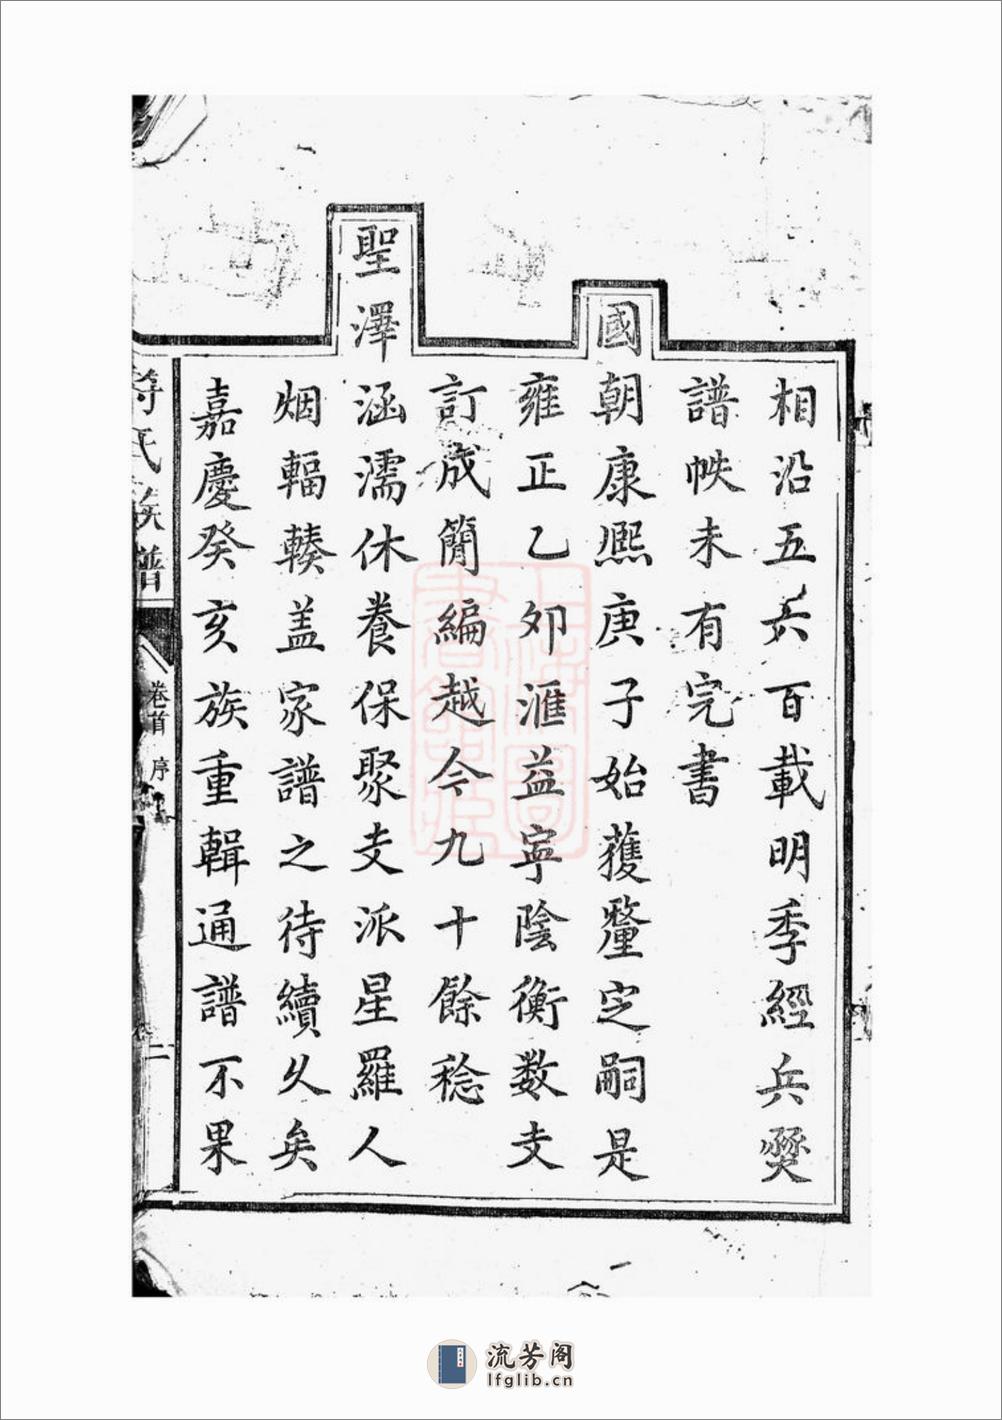 相沿五六百載明季經兵燹
譜帙未有完書
國朝康熙庚子始獲釐定嗣是
雍正乙夘滙益寧陰衡数支
訂成簡編越今九十餘稔
聖澤涵濡休養保聚支派星羅人
烟輻輳盖家譜之待續久矣
嘉慶癸亥族重輯通譜不果
氏族譜
卷首 序
二
上海圖書館藏
流芳阁
lfglib.cn